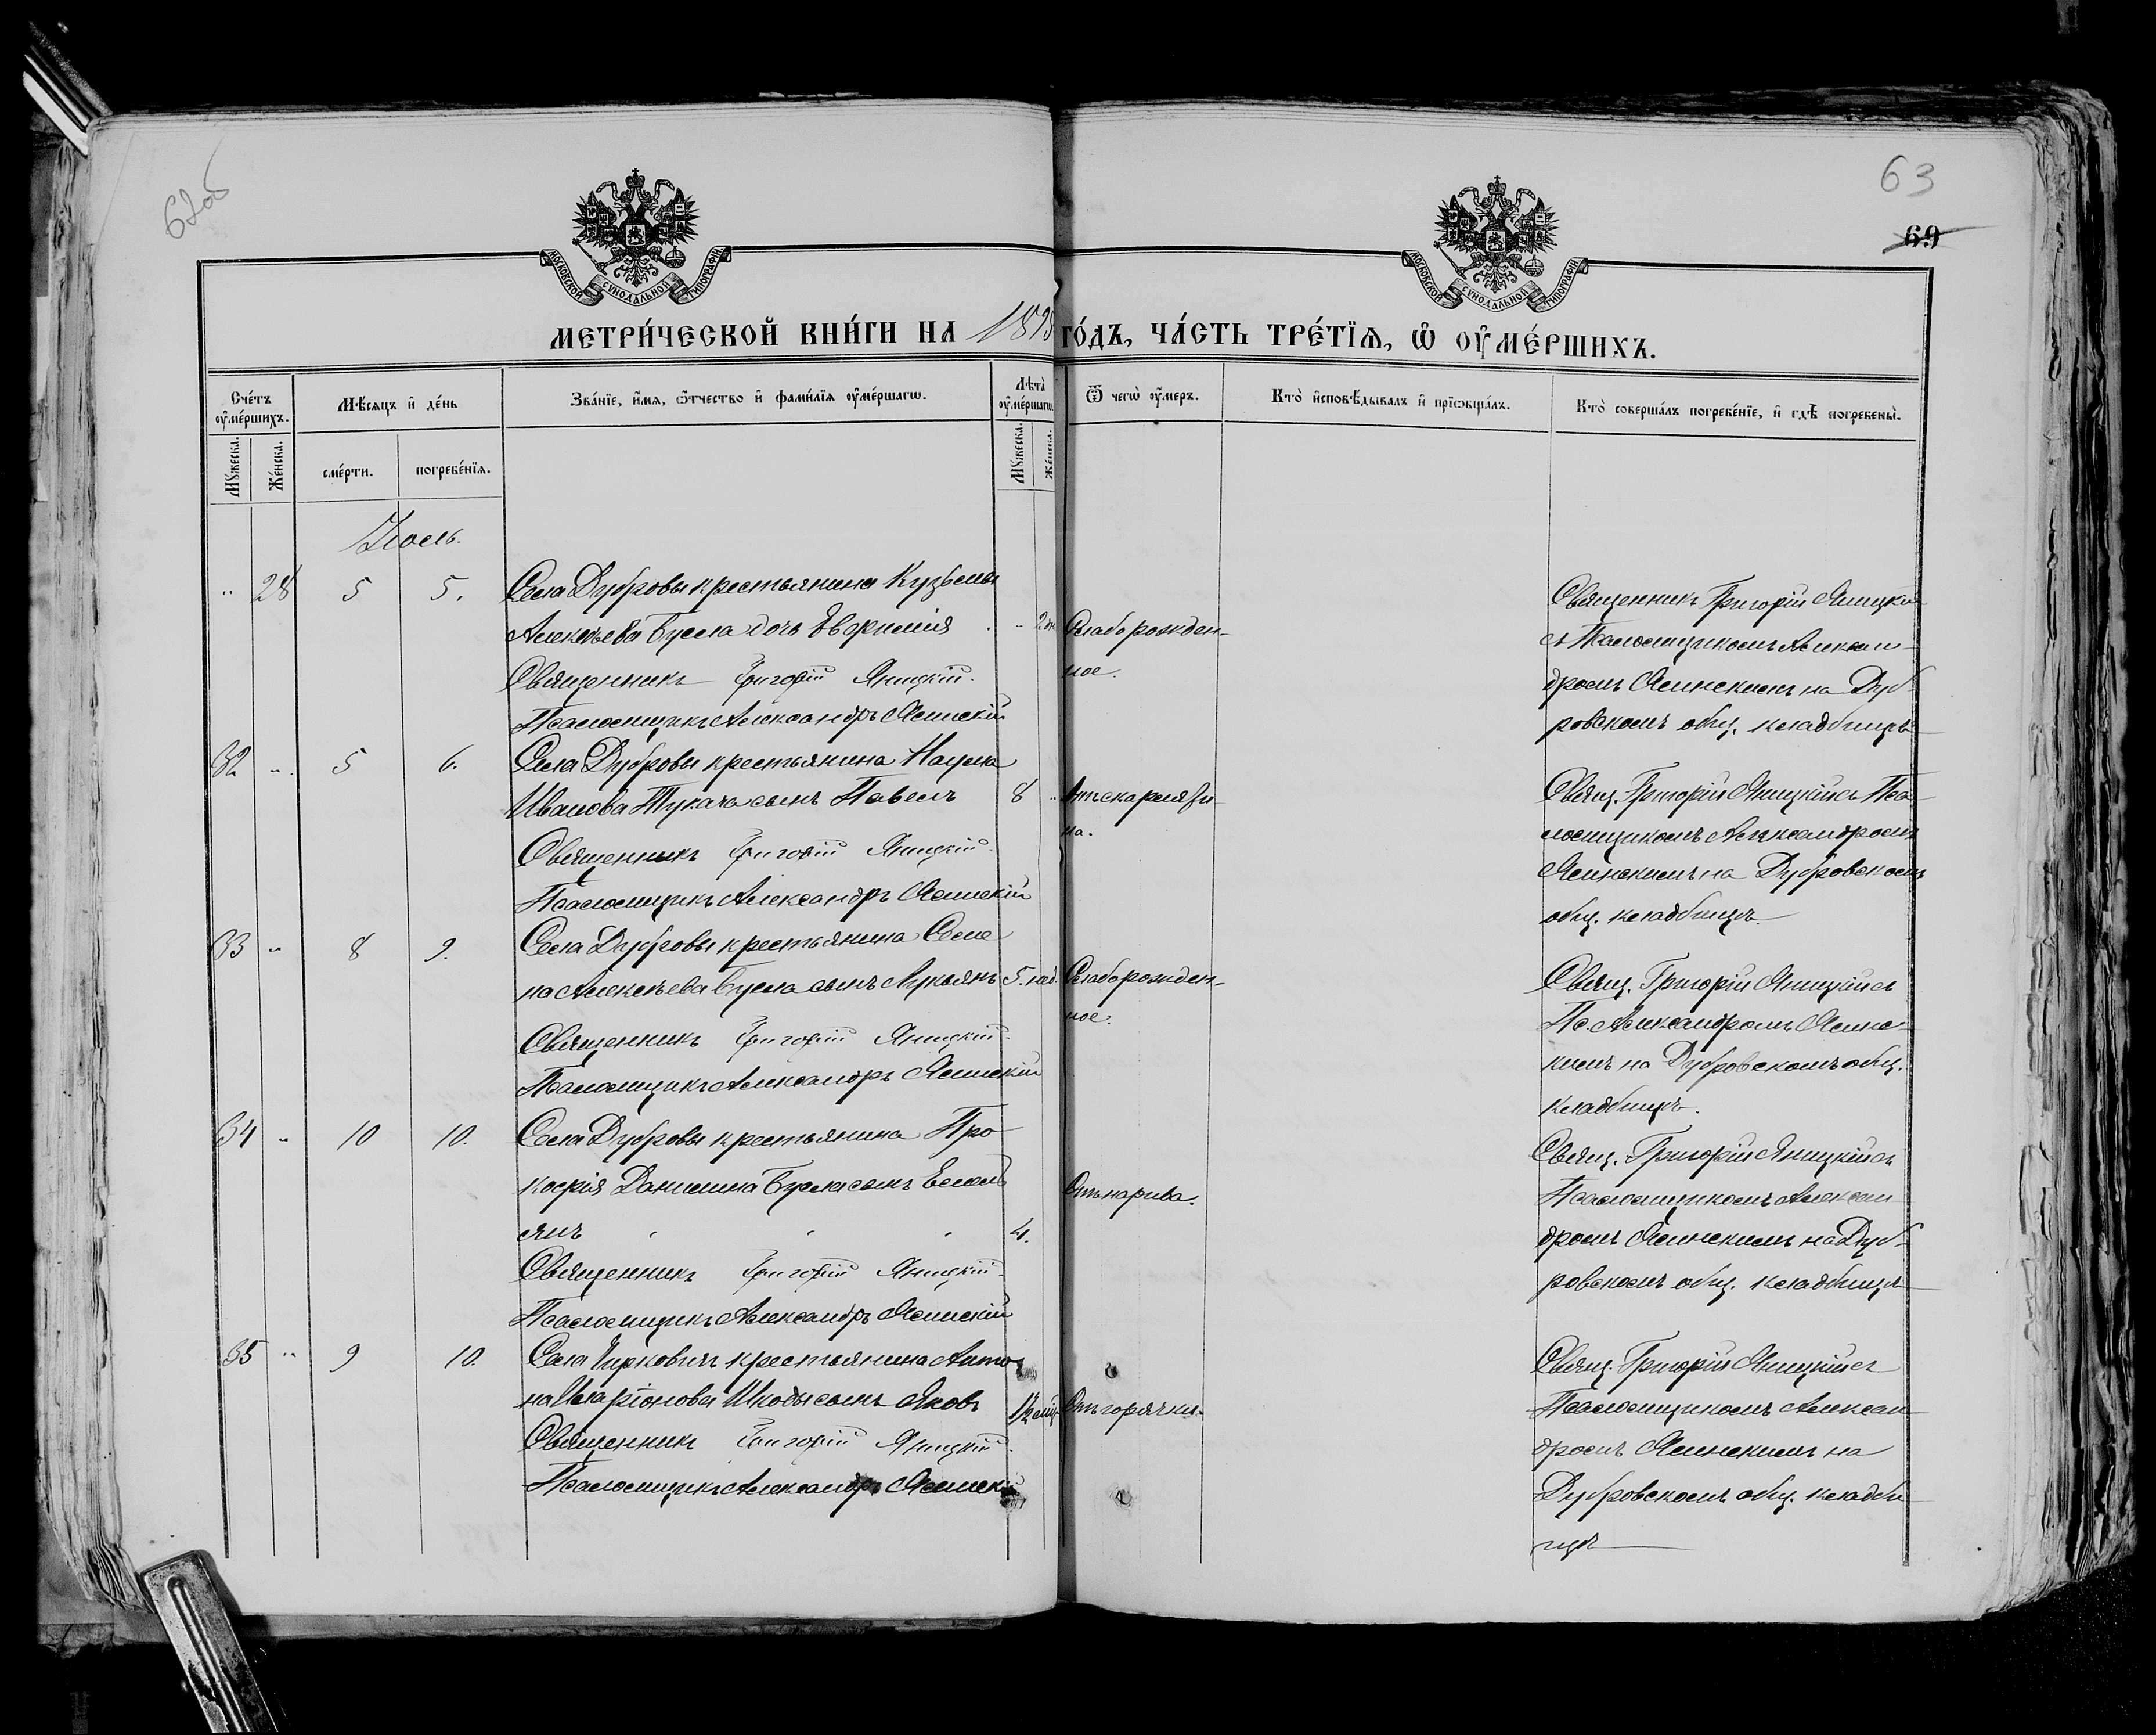 62об
63
69
МОСКОВСКОЙ СѴНОДАЛЬНОЙ ТИПОГРАФІИ
МОСКОВСКОЙ СѴНОДАЛЬНОЙ ТИПОГРАФІИ
МЕТРИ́ЧЕСКОЙ КНИ́ГИ НА 1895 ГО́ДЪ, ЧА́СТЬ ТРЕ́ТЇѦ, Ѡ҆ ОУ҆МЕ́РШИХЪ.
Сче́тъ оу҆ме́ршихъ.
Мѣ́сѧцъ и҆ де́нь
Зва́нїе, и҆́мѧ, ѻ҆́тчество и҆ фами́лїѧ оу҆ме́ршагѡ.
Лѣ̀та оу҆ме́ршагѡ.
Ѿ чегѡ̀ оу҆́меръ.
Кто̀ и҆сповѣ́дывалъ и҆ прїѡбща́лъ.
Кто̀ соверша́лъ погребе́нїе, и҆ гдѣ̀ погребены̀.
Мꙋ́жеска.
Же́нска.
сме́рти.
погребе́нїѧ.
Мꙋ́жеска.
Же́нска.
Іюль.
" 28 5 5. Села Дубровы крестьянина Кузьмы
Алексѣева Бусла дочь Евфимія " 2 дн
Священникъ Григорій Яницкій.
Псаломщикъ Александръ Ясинскій
Слаборожден-
ное.
Священникъ Григорій Яницкій
съ Псаломщикомъ Алексан-
дромъ Ясинскимъ на Дуб-
ровскомъ общ. кладбищѣ
32 " 5 6. Села Дубровы крестьянина Наума
Иванова Тукача сынъ Павелъ 8 "
Священникъ Григорій Яницкій.
Псаломщикъ Александръ Ясинскій
Отъ скарлати-
на.
Свящ. Григорій Яницкій съ Пса-
ломщикомъ Александромъ
Ясинскимъ на Дубровскомъ
общ. кладбищѣ
33 " 8 9. Села Дубровы крестьянина Семе
на Алексѣева Бусла сынъ Лукьянъ 5. нед.
Священникъ Григорій Яницкій.
Псаломщикъ Александръ Ясинскій
Слаборожден-
ное.
Свящ. Григорій Яницкій съ
Пс. Александромъ Ясинс-
кимъ на Дубровскомъ общ.
кладбищѣ.
34 " 10 10. Села Дубровы крестьянина Про
кофія Данилина Бусла сынъ Емель
янъ 4.
Священникъ Григорій Яницкій.
Псаломщикъ Александръ Ясинскій
Отъ нарыва.
Свящ. Григорій Яницкій съ
Псаломщикомъ Алексан
дромъ Ясинскимъ на Дуб-
ровскомъ общ. кладбищѣ
35 " 9 10. Села Чирковичъ крестьянина Анто
на Иларіонова Шкоды сынъ Яковъ 1½
Священникъ Григорій Яницкій.
Псаломщикъ Александръ Ясинскій
Отъ горячки.
Свящ. Григорій Яницкій съ
Псаломщикомъ Алексан
дромъ Ясинскимъ на
Дубровскомъ общ. кладби
щѣ